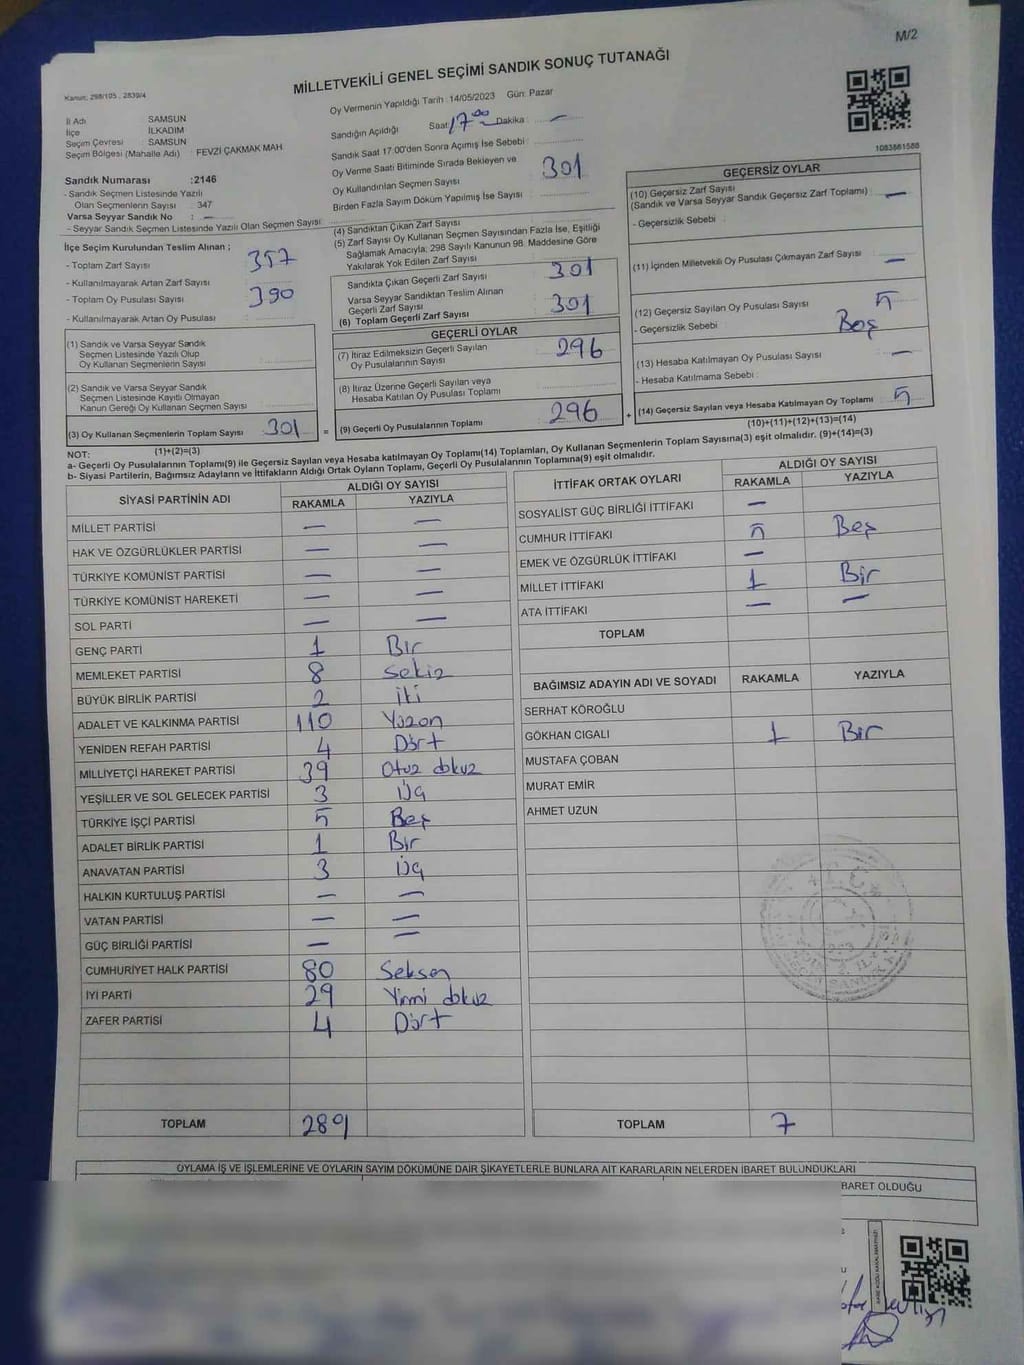 M/2
MİLLETVEKİLİ GENEL SEÇİMİ SANDIK SONUÇ TUTANAĞI
Kanun: 298/105 , 2839/4
Oy Vermenin Yapıldığı Tarih : 14/05/2023 Gün: Pazar
İl Adı SAMSUN
İlçe İLKADIM
Seçim Çevresi : SAMSUN
Seçim Bölgesi (Mahalle Adı) : FEVZİ ÇAKMAK MAH
Sandığın Açıldığı Saat 17⁰⁰ Dakika : —
Sandık Saat 17:00'den Sonra Açımış İse Sebebi :
Oy Verme Saati Bitiminde Sırada Bekleyen ve
Oy Kullandırılan Seçmen Sayısı 301
Birden Fazla Sayım Döküm Yapılmış İse Sayısı :
1083861586
Sandık Numarası :2146
- Sandık Seçmen Listesinde Yazılı
Olan Seçmenlerin Sayısı : 347
Varsa Seyyar Sandık No : —
- Seyyar Sandık Seçmen Listesinde Yazılı Olan Seçmen Sayısı
İlçe Seçim Kurulundan Teslim Alınan ;
- Toplam Zarf Sayısı 357
- Kullanılmayarak Artan Zarf Sayısı :
- Toplam Oy Pusulası Sayısı 390
- Kullanılmayarak Artan Oy Pusulası :
(1) Sandık ve Varsa Seyyar Sandık
Seçmen Listesinde Yazılı Olup
Oy Kullanan Seçmenlerin Sayısı :
(2) Sandık ve Varsa Seyyar Sandık
Seçmen Listesinde Kayıtlı Olmayan
Kanun Gereği Oy Kullanan Seçmen Sayısı :
(3) Oy Kullanan Seçmenlerin Toplam Sayısı 301 =
(1)+(2)=(3)
(4) Sandıktan Çıkan Zarf Sayısı
(5) Zarf Sayısı Oy Kullanan Seçmen Sayısından Fazla İse, Eşitliği
Sağlamak Amacıyla, 298 Sayılı Kanunun 98. Maddesine Göre
Yakılarak Yok Edilen Zarf Sayısı
Sandıkta Çıkan Geçerli Zarf Sayısı 301
Varsa Seyyar Sandıktan Teslim Alınan
Geçerli Zarf Sayısı
(6) Toplam Geçerli Zarf Sayısı 301
GEÇERLİ OYLAR
(7) İtiraz Edilmeksizin Geçerli Sayılan
Oy Pusulalarının Sayısı 296
(8) İtiraz Üzerine Geçerli Sayılan veya
Hesaba Katılan Oy Pusulası Toplamı
(9) Geçerli Oy Pusulalarının Toplamı 296 +
GEÇERSİZ OYLAR
(10) Geçersiz Zarf Sayısı
(Sandık ve Varsa Seyyar Sandık Geçersiz Zarf Toplamı) —
- Geçersizlik Sebebi :
(11) İçinden Milletvekili Oy Pusulası Çıkmayan Zarf Sayısı —
(12) Geçersiz Sayılan Oy Pusulası Sayısı 5
- Geçersizlik Sebebi : Beş
(13) Hesaba Katılmayan Oy Pusulası Sayısı —
- Hesaba Katılmama Sebebi :
(14) Geçersiz Sayılan veya Hesaba Katılmayan Oy Toplamı 5
(10)+(11)+(12)+(13)=(14)
NOT:
a- Geçerli Oy Pusulalarının Toplamı(9) ile Geçersiz Sayılan veya Hesaba katılmayan Oy Toplamı(14) Toplamları, Oy Kullanan Seçmenlerin Toplam Sayısına(3) eşit olmalıdır. (9)+(14)=(3)
b- Siyasi Partilerin, Bağımsız Adayların ve İttifakların Aldığı Ortak Oyların Toplamı, Geçerli Oy Pusulalarının Toplamına(9) eşit olmalıdır.
SİYASİ PARTİNİN ADI ALDIĞI OY SAYISI
RAKAMLA YAZIYLA
MİLLET PARTİSİ — —
HAK VE ÖZGÜRLÜKLER PARTİSİ — —
TÜRKİYE KOMÜNİST PARTİSİ — —
TÜRKİYE KOMÜNİST HAREKETİ — —
SOL PARTİ — —
GENÇ PARTİ 1 Bir
MEMLEKET PARTİSİ 8 Sekiz
BÜYÜK BİRLİK PARTİSİ 2 iki
ADALET VE KALKINMA PARTİSİ 110 Yüzon
YENİDEN REFAH PARTİSİ 4 Dört
MİLLİYETÇİ HAREKET PARTİSİ 39 Otuz dokuz
YEŞİLLER VE SOL GELECEK PARTİSİ 3 Üç
TÜRKİYE İŞÇİ PARTİSİ 5 Beş
ADALET BİRLİK PARTİSİ 1 Bir
ANAVATAN PARTİSİ 3 Üç
HALKIN KURTULUŞ PARTİSİ — —
VATAN PARTİSİ — —
GÜÇ BİRLİĞİ PARTİSİ — —
CUMHURİYET HALK PARTİSİ 80 Seksen
İYİ PARTİ 29 Yirmi dokuz
ZAFER PARTİSİ 4 Dört
TOPLAM 289
İTTİFAK ORTAK OYLARI ALDIĞI OY SAYISI
RAKAMLA YAZIYLA
SOSYALİST GÜÇ BİRLİĞİ İTTİFAKI —
CUMHUR İTTİFAKI 5 Beş
EMEK VE ÖZGÜRLÜK İTTİFAKI —
MİLLET İTTİFAKI 1 Bir
ATA İTTİFAKI — —
TOPLAM
BAĞIMSIZ ADAYIN ADI VE SOYADI RAKAMLA YAZIYLA
SERHAT KÖROĞLU
GÖKHAN CIGALI 1 Bir
MUSTAFA ÇOBAN
MURAT EMİR
AHMET UZUN
TOPLAM 7
OYLAMA İŞ VE İŞLEMLERİNE VE OYLARIN SAYIM DÖKÜMÜNE DAİR ŞİKAYETLERLE BUNLARA AİT KARARLARIN NELERDEN İBARET BULUNDUKLARI
BARET OLDUĞU